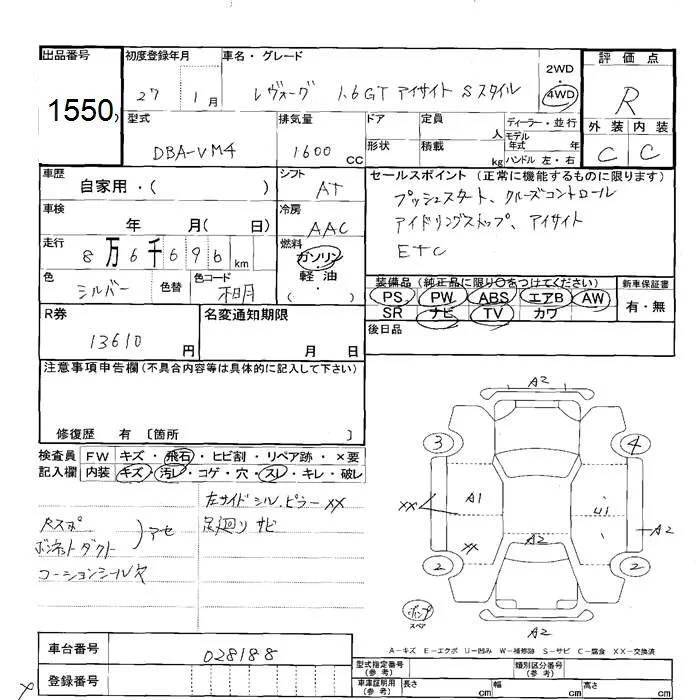 出品番号 初度登録年月 車名・グレード 評価点
1550
27 1月 レヴォーグ 1.6GT アイサイト Sスタイル 2WD ・ 4WD R
型式 排気量 ドア 定員 人 ディーラー・並行 外装 内装
DBA-VM4 1600 CC 形状 積載 kg モデル年式 年 ハンドル 左・右 C C
車歴 シフト セールスポイント (正常に機能するものに限ります)
自家用・( ) AT プッシュスタート、クルーズコントロール
車検 冷房 アイドリングストップ、アイサイト
年 月( 日) AAC ETC
走行 燃料
8万6千696km ガソリン・軽油・( )
色 色替 色コード 装備品 (純正品に限り○をつけてください) 新車保証書
シルバー PS PW ABS エアB AW 有・無
SR ナビ TV カワ
R券 名変通知期限 後日品
13610円 月 日
注意事項申告欄(不具合内容等は具体的に記入して下さい)
修復歴 有 〔箇所 〕
検査員 FW キズ・飛石・ヒビ割・リペア跡・×要
記入欄 内装 キズ・汚レ・コゲ・穴・スレ・キレ・破レ
左サイドシル.ピラーXX
足廻りサビ
ボンネットダクト アセ
コーションシール欠
A2
3 4
XX A1 U1
XX A2 A2
2 2
スペア
A2
A-キズ E-エクボ U-凹み W-補修跡 S-サビ C-腐食 XX-交換済
車台番号 028188 型式指定番号(参考) 類別区分番号(参考)
登録番号 車庫証明用(参考) 長さ cm 幅 cm 高さ cm